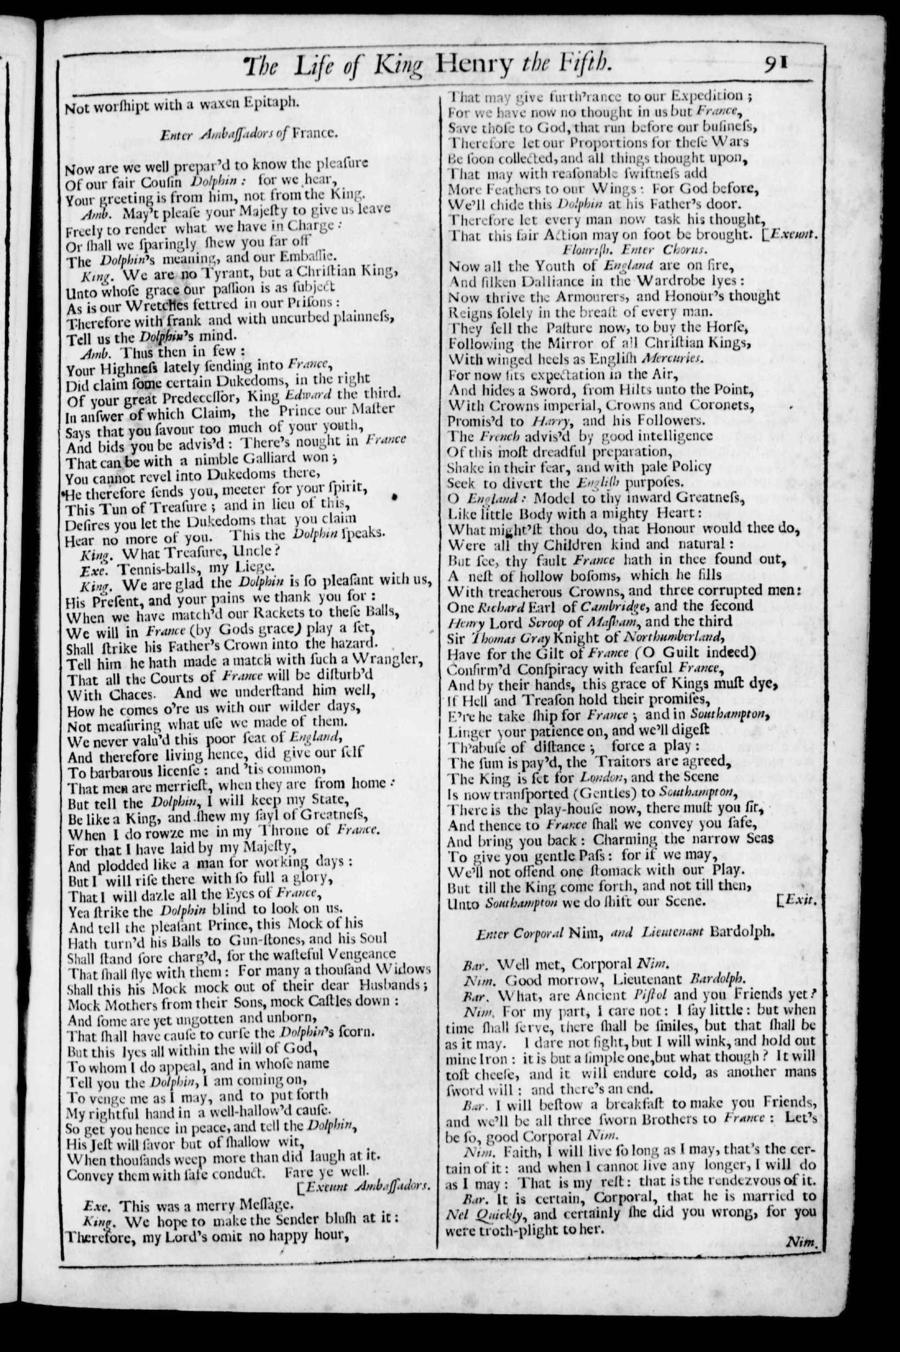 The Life of King Henry the Fifth. 91
Not worſhipt with a waxen Epitaph.
Enter Ambaſſadors of France.
Now are we well prepar'd to know the pleaſure
Of our fair Couſin Dolphin : for we hear,
Your greeting is from him, not from the King.
Amb. May't pleaſe your Majeſty to give us leave
Freely to render what we have in Charge :
Or ſhall we ſparingly ſhew you far off
The Dolphin's meaning, and our Embaſſie.
King. We are no Tyrant, but a Chriſtian King,
Unto whoſe grace our paſſion is as ſubject
As is our Wretches fettred in our Priſons :
Therefore with frank and with uncurbed plainneſs,
Tell us the Dolphin's mind.
Amb. Thus then in few :
Your Highneſs lately ſending into France,
Did claim ſome certain Dukedoms, in the right
Of your great Predeceſſor, King Edward the third.
In anſwer of which Claim, the Prince our Maſter
Says that you ſavour too much of your youth,
And bids you be advis'd : There's nought in France
That can be with a nimble Galliard won ;
You cannot revel into Dukedoms there,
He therefore ſends you, meeter for your ſpirit,
This Tun of Treaſure ; and in lieu of this,
Deſires you let the Dukedoms that you claim
Hear no more of you. This the Dolphin ſpeaks.
King. What Treaſure, Uncle ?
Exe. Tennis-balls, my Liege.
King. We are glad the Dolphin is ſo pleaſant with us,
His Preſent, and your pains we thank you for :
When we have match'd our Rackets to theſe Balls,
We will in France (by Gods grace) play a ſet,
Shall ſtrike his Father's Crown into the hazard.
Tell him he hath made a match with ſuch a Wrangler,
That all the Courts of France will be diſturb'd
With Chaces. And we underſtand him well,
How he comes o're us with our wilder days,
Not meaſuring what uſe we made of them.
We never valu'd this poor ſeat of England,
And therefore living hence, did give our ſelf
To barbarous licenſe : and 'tis common,
That men are merrieſt, when they are from home :
But tell the Dolphin, I will keep my State,
Be like a King, and ſhew my ſayl of Greatneſs,
When I do rowze me in my Throne of France.
For that I have laid by my Majeſty,
And plodded like a man for working days :
But I will riſe there with ſo full a glory,
That I will dazle all the Eyes of France,
Yea ſtrike the Dolphin blind to look on us.
And tell the pleaſant Prince, this Mock of his
Hath turn'd his Balls to Gun-ſtones, and his Soul
Shall ſtand ſore charg'd, for the waſteful Vengeance
That ſhall flye with them : For many a thouſand Widows
Shall this his Mock mock out of their dear Husbands ;
Mock Mothers from their Sons, mock Caſtles down :
And ſome are yet ungotten and unborn,
That ſhall have cauſe to curſe the Dolphin's ſcorn.
But this lyes all within the will of God,
To whom I do appeal, and in whoſe name
Tell you the Dolphin, I am coming on,
To venge me as I may, and to put forth
My rightful hand in a well-hallow'd cauſe.
So get you hence in peace, and tell the Dolphin,
His Jeſt will ſavor but of ſhallow wit,
When thouſands weep more than did laugh at it.
Convey them with ſafe conduct. Fare ye well.
[Exeunt Ambaſſadors.
Exe. This was a merry Meſſage.
King. We hope to make the Sender bluſh at it :
Therefore, my Lord's omit no happy hour,
That may give furth'rance to our Expedition ;
For we have now no thought in us but France,
Save thoſe to God, that run before our buſineſs,
Therefore let our Proportions for theſe Wars
Be ſoon collected, and all things thought upon,
That may with reaſonable ſwiftneſs add
More Feathers to our Wings : For God before,
We'll chide this Dolphin at his Father's door.
Therefore let every man now task his thought,
That this fair Action may on foot be brought. [Exeunt.
Flouriſh. Enter Chorus.
Now all the Youth of England are on fire,
And ſilken Dalliance in the Wardrobe lyes :
Now thrive the Armourers, and Honour's thought
Reigns ſolely in the breaſt of every man.
They ſell the Paſture now, to buy the Horſe,
Following the Mirror of all Chriſtian Kings,
With winged heels as Engliſh Mercuries.
For now ſits expectation in the Air,
And hides a Sword, from Hilts unto the Point,
With Crowns imperial, Crowns and Coronets,
Promis'd to Harry, and his Followers.
The French advis'd by good intelligence
Of this moſt dreadful preparation,
Shake in their fear, and with pale Policy
Seek to divert the Engliſh purpoſes.
O England : Model to thy inward Greatneſs,
Like little Body with a mighty Heart :
What might'ſt thou do, that Honour would thee do,
Were all thy Children kind and natural :
But ſee, thy fault France hath in thee found out,
A neſt of hollow boſoms, which he fills
With treacherous Crowns, and three corrupted men :
One Richard Earl of Cambridge, and the ſecond
Henry Lord Scroop of Maſham, and the third
Sir Thomas Gray Knight of Northumberland,
Have for the Gilt of France (O Guilt indeed)
Confirm'd Conſpiracy with fearful France,
And by their hands, this grace of Kings muſt dye,
If Hell and Treaſon hold their promiſes,
E're he take ſhip for France ; and in Southampton,
Linger your patience on, and we'll digeſt
Th'abuſe of diſtance ; force a play :
The ſum is pay'd, the Traitors are agreed,
The King is ſet for London, and the Scene
Is now tranſported (Gentles) to Southampton,
There is the play-houſe now, there muſt you ſit,
And thence to France ſhall we convey you ſafe,
And bring you back : Charming the narrow Seas
To give you gentle Paſs : for if we may,
We'll not offend one ſtomack with our Play.
But till the King come forth, and not till then,
Unto Southampton we do ſhift our Scene. [Exit.
Enter Corporal Nim, and Lieutenant Bardolph.
Bar. Well met, Corporal Nim.
Nim. Good morrow, Lieutenant Bardolph.
Bar. What, are Ancient Piſtol and you Friends yet?
Nim. For my part, I care not : I ſay little : but when
time ſhall ſerve, there ſhall be ſmiles, but that ſhall be
as it may. I dare not fight, but I will wink, and hold out
mine Iron : it is but a ſimple one, but what though ? It will
toſt cheeſe, and it will endure cold, as another mans
ſword will : and there's an end.
Bar. I will beſtow a breakfaſt to make you Friends,
and we'll be all three ſworn Brothers to France : Let's
be ſo, good Corporal Nim.
Nim. Faith, I will live ſo long as I may, that's the cer-
tain of it : and when I cannot live any longer, I will do
as I may : That is my reſt : that is the rendezvous of it.
Bar. It is certain, Corporal, that he is married to
Nel Quickly, and certainly ſhe did you wrong, for you
were troth-plight to her.
Nim.